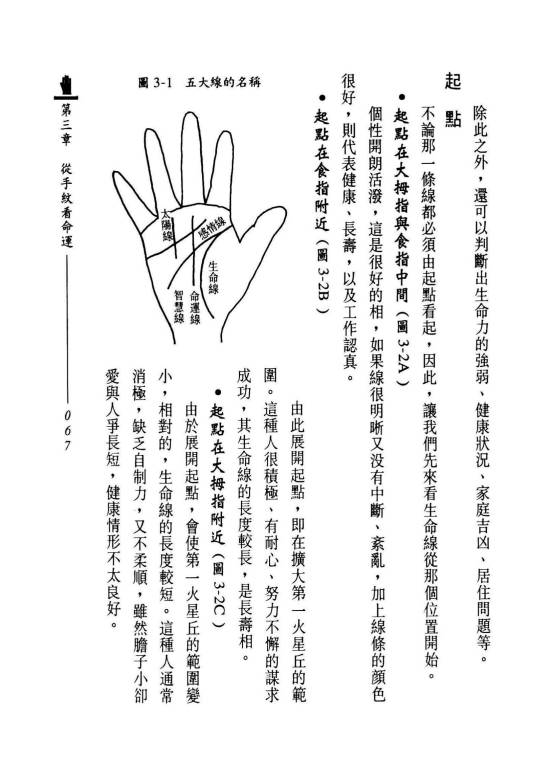 除此之外，還可以判斷出生命力的強弱、健康狀況、家庭吉凶、居住問題等。
起點
不論那一條線都必須由起點看起，因此，讓我們先來看生命線從那個位置開始。
•起點在大拇指與食指中間（圖3-2A）
個性開朗活潑，這是很好的相，如果線很明晰又沒有中斷、紊亂，加上線條的顏色
很好，則代表健康、長壽，以及工作認真。
•起點在食指附近（圖3-2B）
由此展開起點，即在擴大第一火星丘的範
圍。這種人很積極、有耐心、努力不懈的謀求
成功，其生命線的長度較長，是長壽相。
•起點在大拇指附近（圖3-2C）
由於展開起點，會使第一火星丘的範圍變
小，相對的，生命線的長度較短。這種人通常
消極，缺乏自制力，又不柔順，雖然膽子小卻
愛與人爭長短，健康情形不太良好。
圖3-1 五大線的名稱
太陽線
感情線
生命線
命運線
智慧線
第三章 從手紋看命運
067